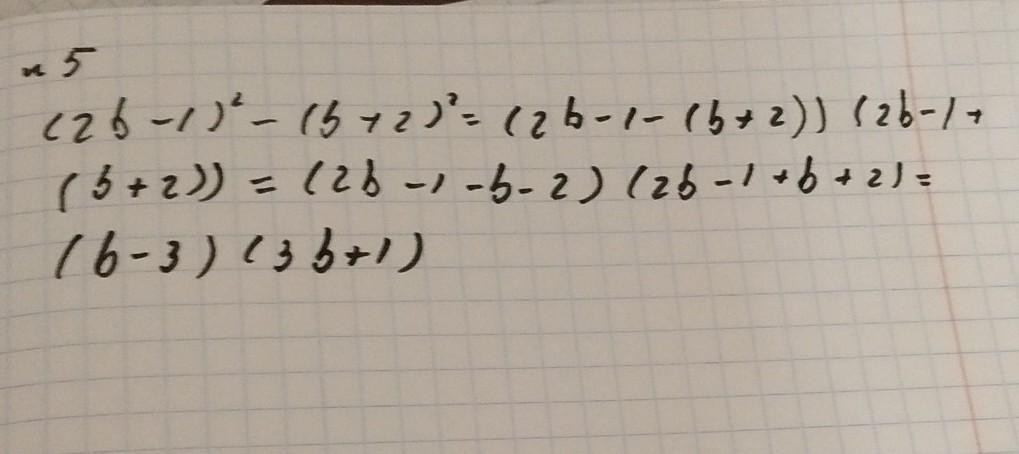 н 5
(2b-1)² - (b+2)² = (2b-1-(b+2)) (2b-1+
(b+2)) = (2b-1-b-2) (2b-1+b+2) =
(b-3) (3b+1)